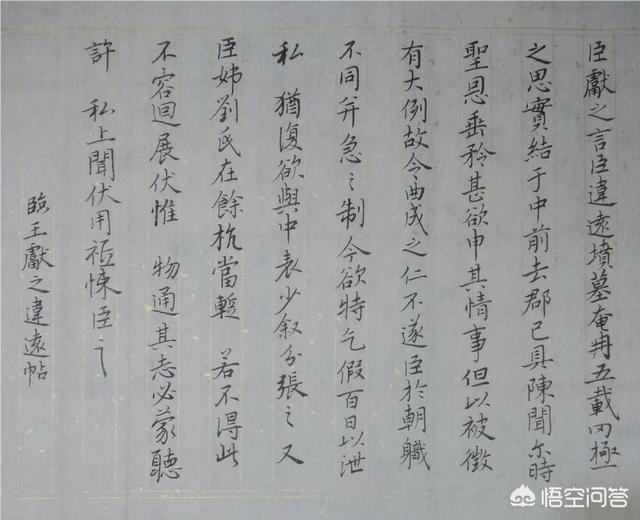 臣獻之言臣違遠墳墓奄冉五載罔極
之思實結于中前去郡已具陳聞尒時
聖恩垂矜甚欲申其情事但以被徵
有大例故令曲成之仁不遂臣於朝職
不同并急之制今欲特乞假百日以泄
私 猶復欲與中表少叙分張之又
臣姊劉氏在餘杭當蹔 若不得此
不容迴展伏惟 物通其志必蒙聽
許 私上聞伏用祗悚臣之
臨王獻之違遠帖
悟空问答